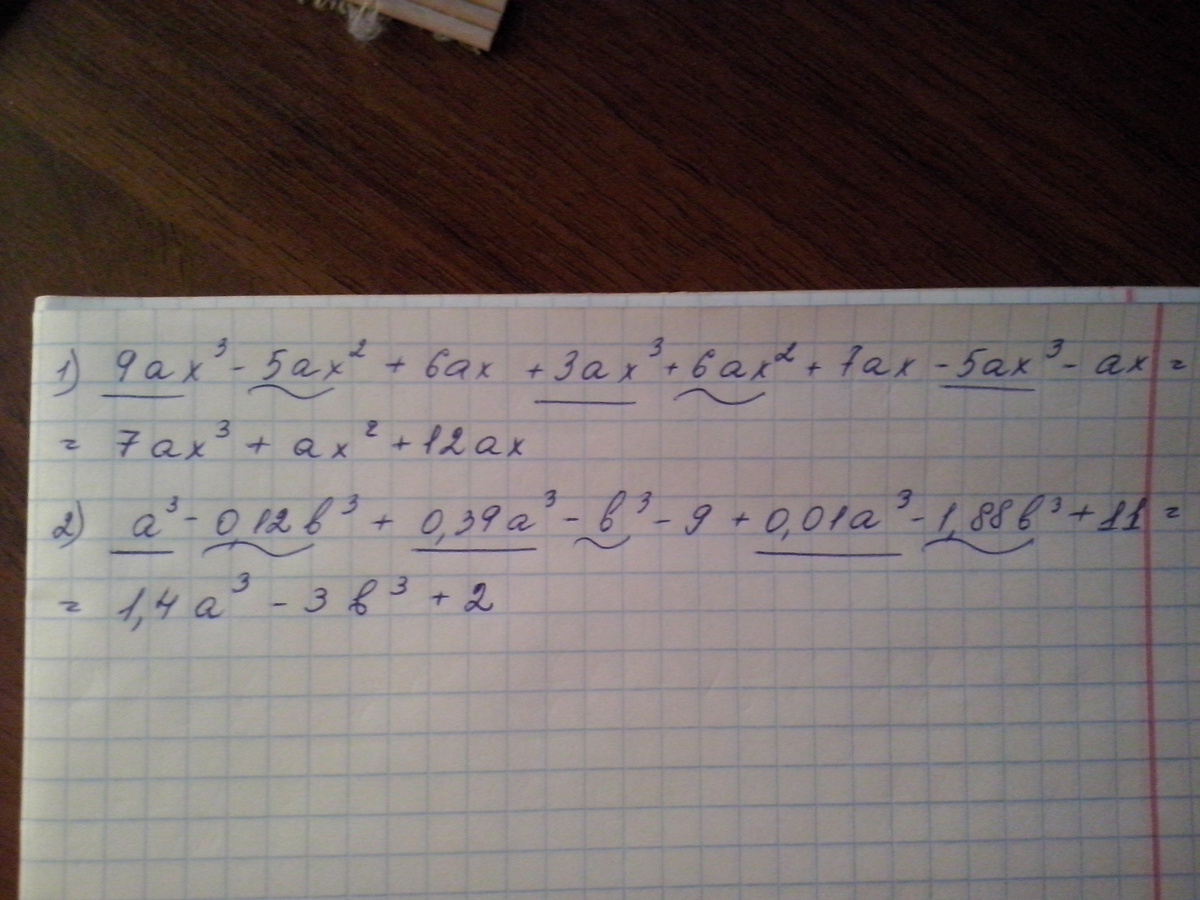 1) 9ax³ - 5ax² + 6ax + 3ax³ + 6ax² + 7ax - 5ax³ - ax =
= 7ax³ + ax² + 12ax
2) a³ - 0,12в³ + 0,39a³ - в³ - 9 + 0,01a³ - 1,88в³ + 11 =
= 1,4a³ - 3в³ + 2